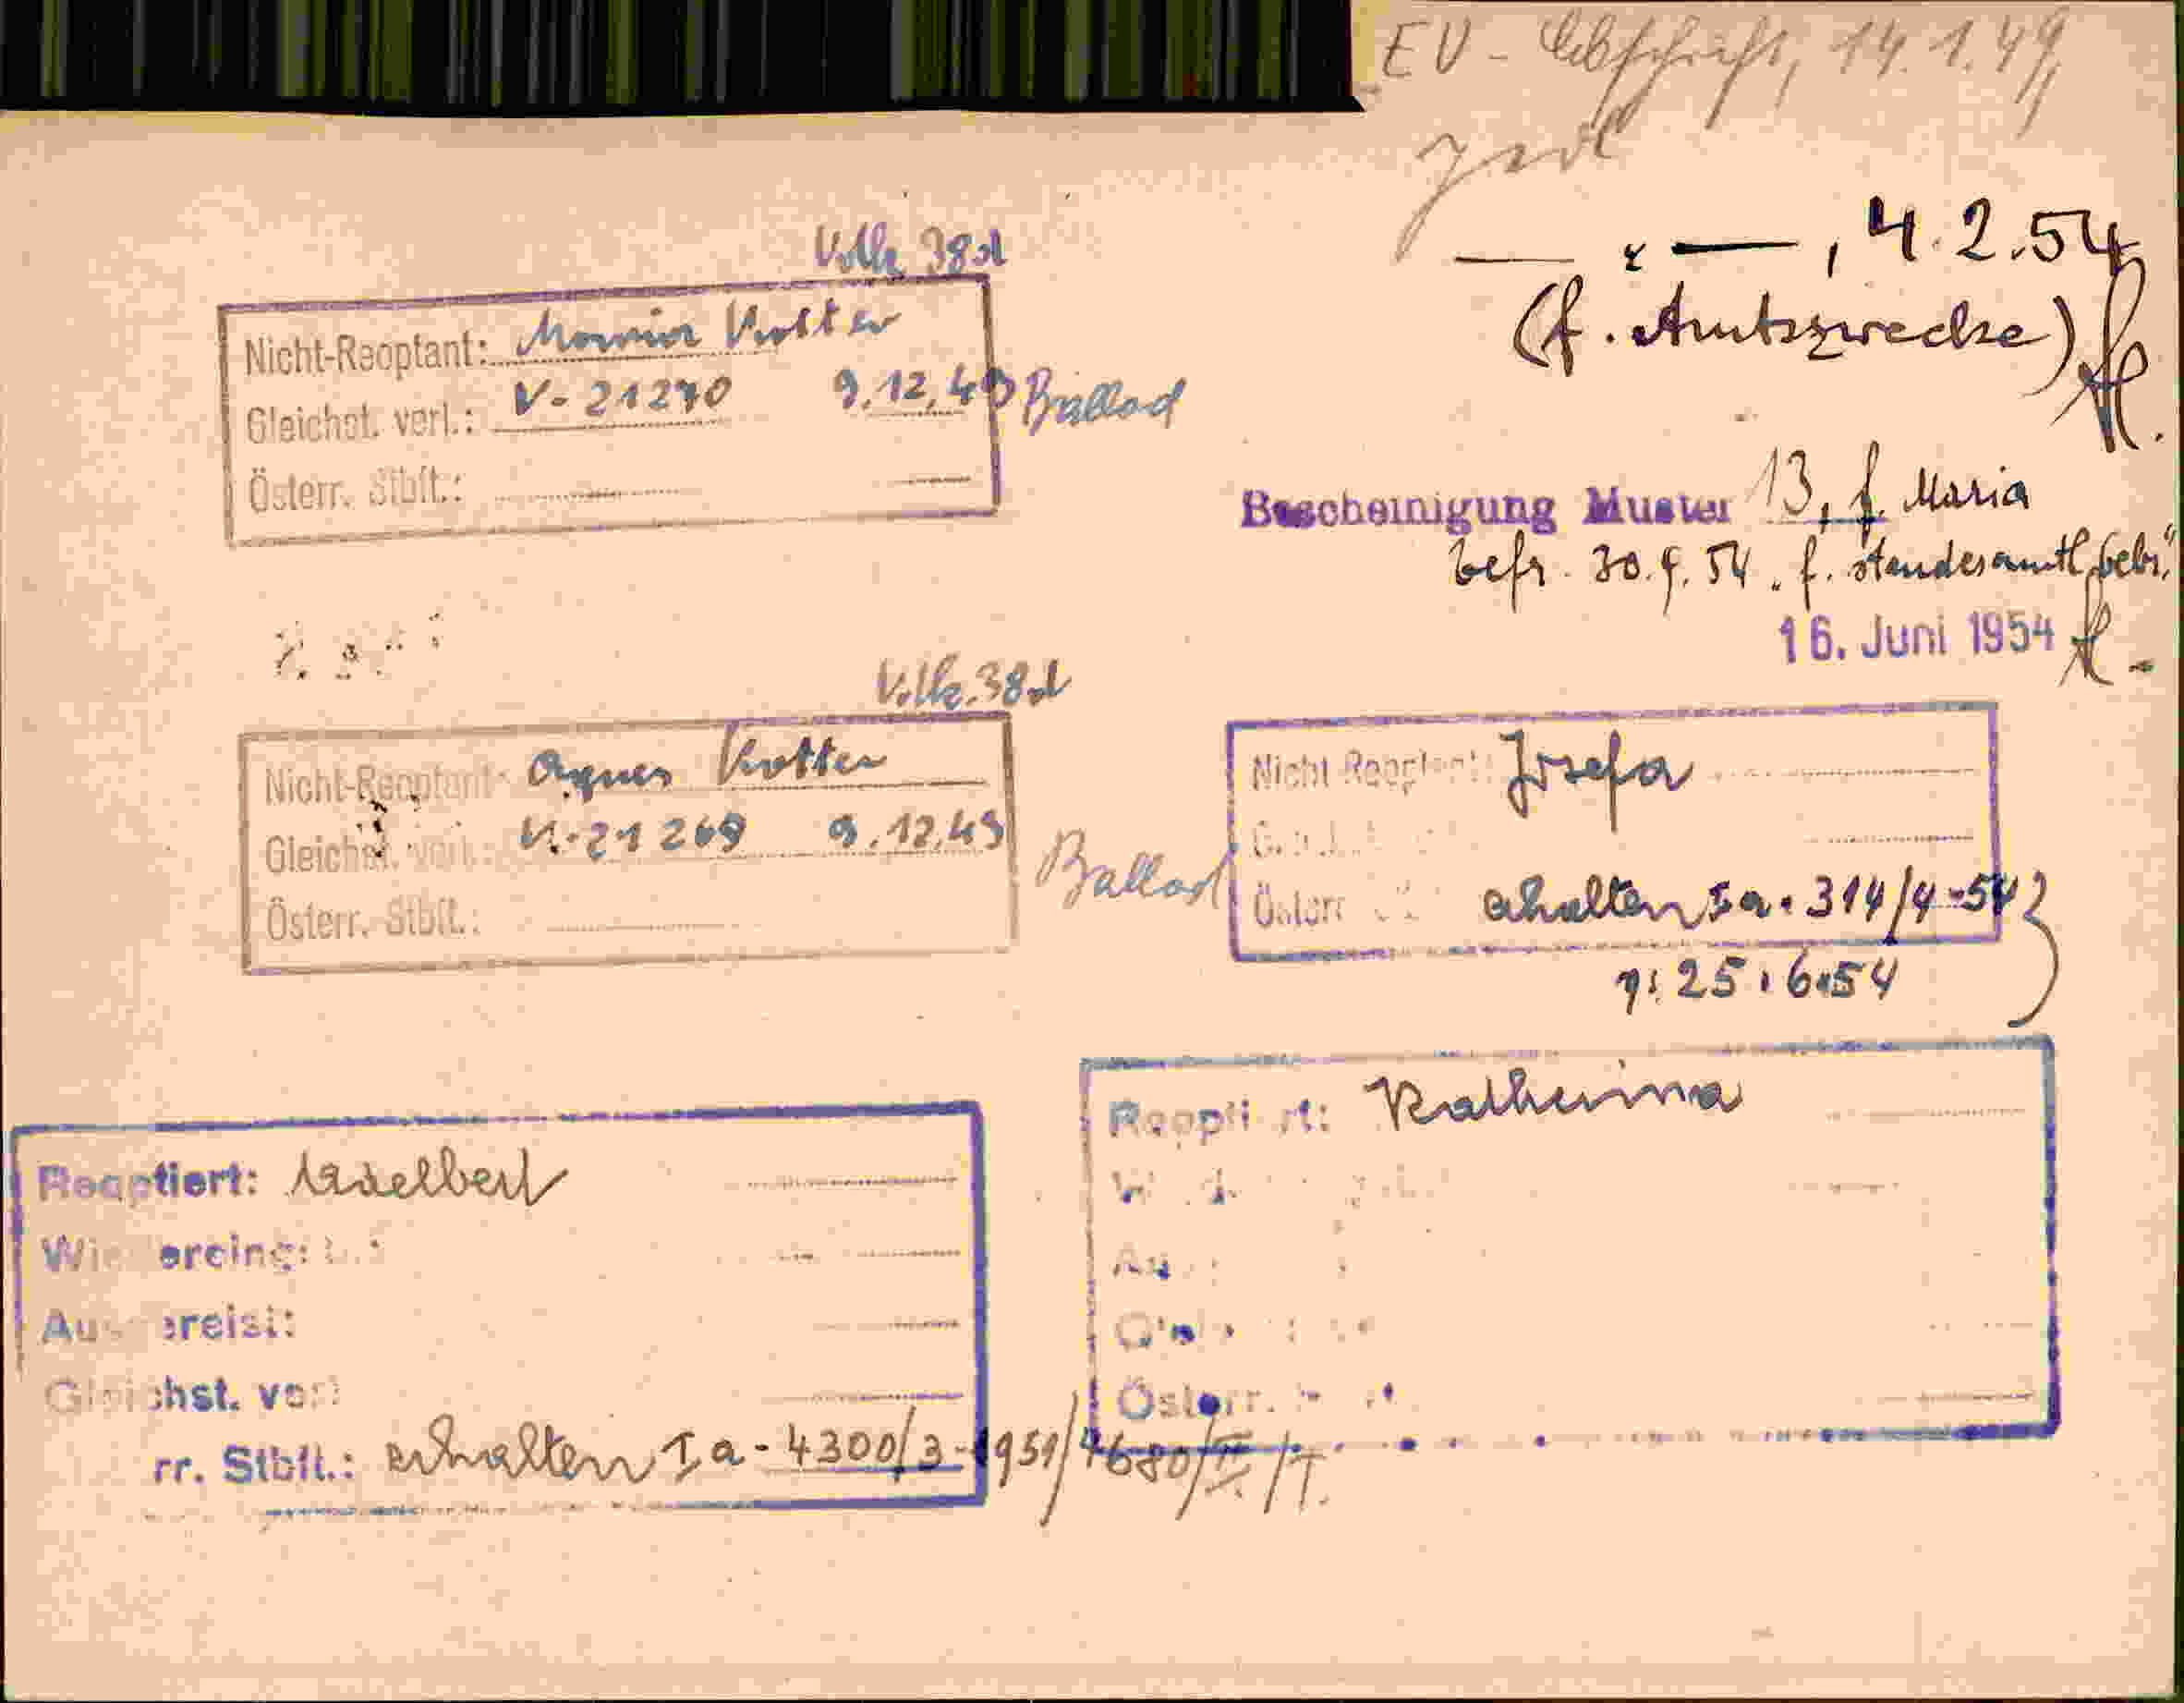 EV - Abschrift, 14.1.49,
— " — , 4.2.54
(f. Amtszwecke)
Volk 38d
Nicht-Reoptant: Kotter
Gleichst. verl.: V-21270 9.12.49 Ballad
Österr. Stbft.:
Bescheinigung Muster 13, f. Maria
befr. 30.9.54. f. standesamtl. Gebr."
16. Juni 1954
Volk. 38d
Nicht-Reoptant: Agnes Kotter
Gleichst. verl.: V.-21269 9.12.49
Ballad
Österr. Stbft.:
Nicht Reoptant: Josefa
Österr. erhalten Ia-314/4-54
v: 25.6.54
Reoptiert: Adelbert
Wiedereing:
Ausgereist:
Gleichst. verl
rr. Stbft.: erhalten Ia-4300/3-1951/4680/IV/T.
Reoptiert: Katherina
Österr.